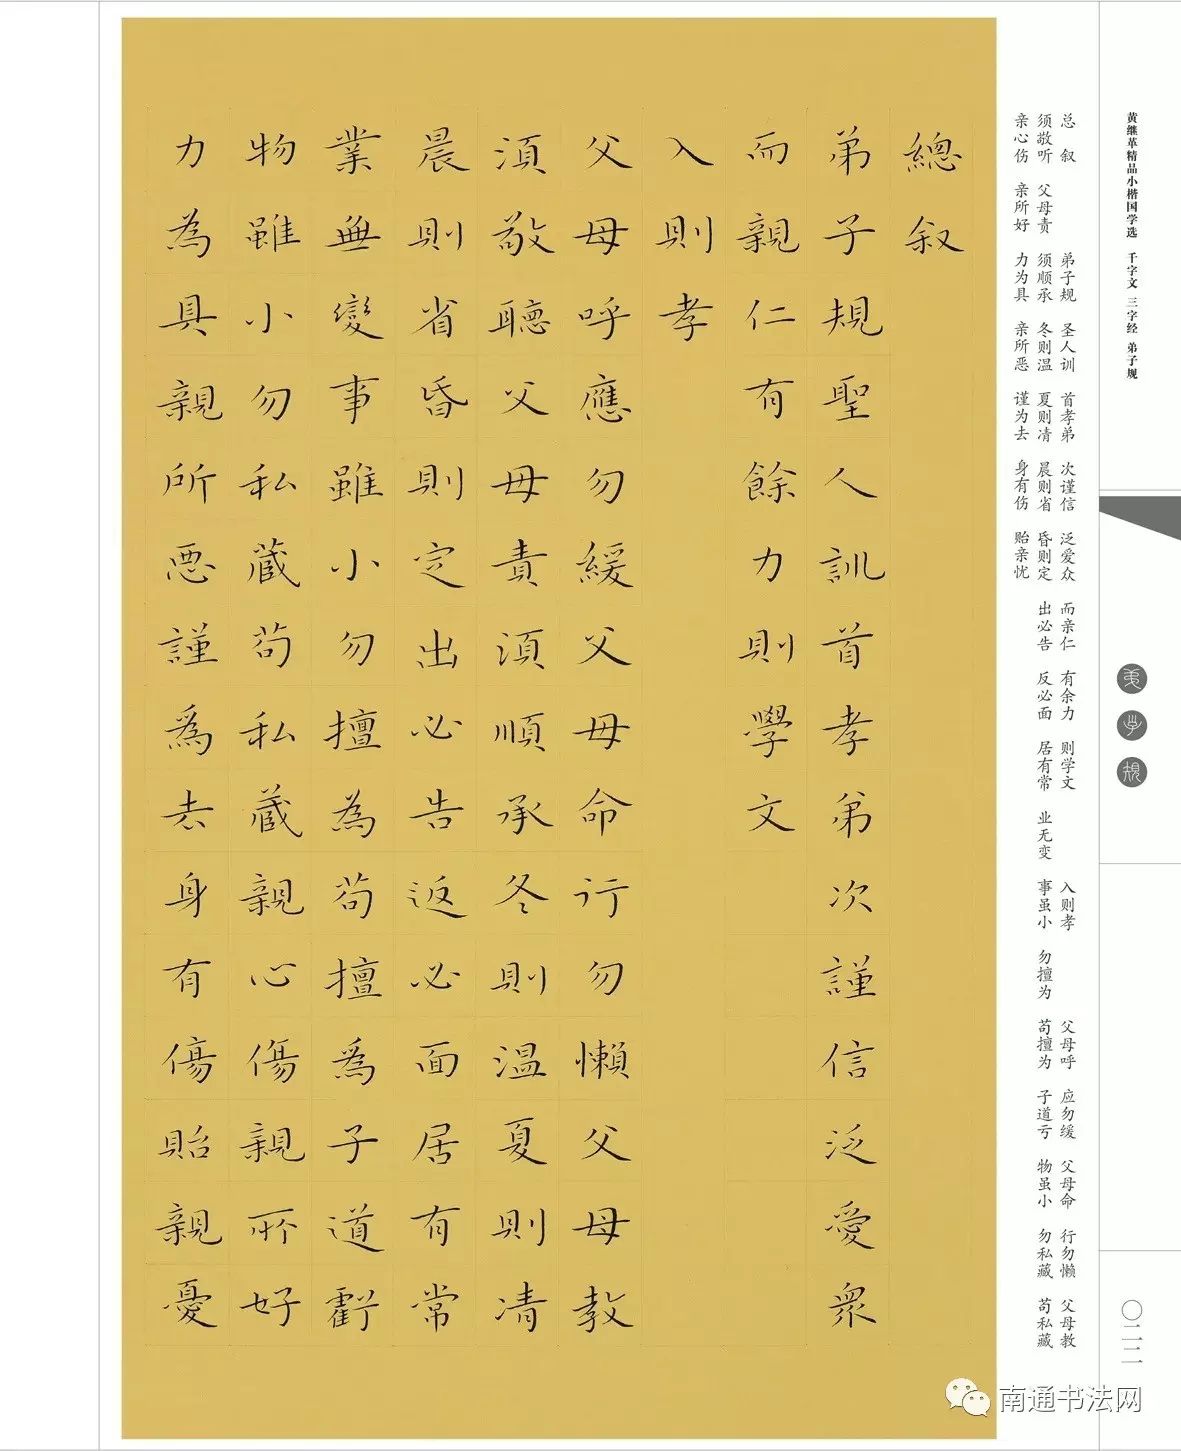 黄继革精品小楷国学选 千字文 三字经 弟子规
弟子规
〇二二
总叙 弟子规 圣人训 首孝弟 次谨信 泛爱众 而亲仁 有余力 则学文 入则孝 父母呼 应勿缓 父母命 行勿懒 父母教
须敬听 父母责 须顺承 冬则温 夏则凊 晨则省 昏则定 出必告 反必面 居有常 业无变 事虽小 勿擅为 苟擅为 子道亏 物虽小 勿私藏 苟私藏
亲心伤 亲所好 力为具 亲所恶 谨为去 身有伤 贻亲忧
總叙
弟子規聖人訓首孝弟次謹信泛愛眾
而親仁有餘力則學文
入則孝
父母呼應勿緩父母命行勿懶父母教
須敬聽父母責須順承冬則温夏則凊
晨則省昏則定出必告返必面居有常
業無變事雖小勿擅為茍擅爲子道虧
物雖小勿私蔵茍私蔵親心傷親所好
力為具親所惡謹爲去身有傷貽親憂
南通书法网